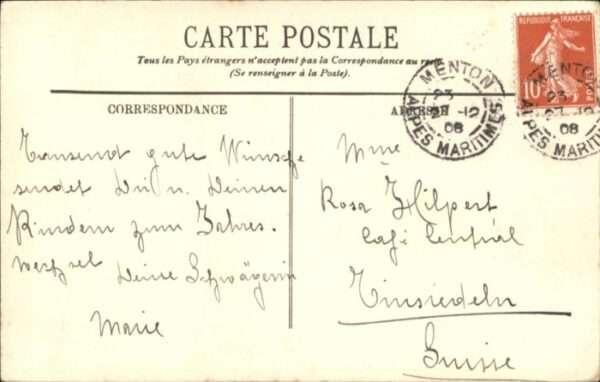 CARTE POSTALE
Tous les Pays étrangers n'acceptent pas la Correspondance au recto
(Se renseigner à la Poste).
CORRESPONDANCE
Tausend gute Wünsche
sendet Dir u. Deinen
Kindern zum Jahres-
wechsel Deine Schwägerin
Marie
ADRESSE
Mme
Rosa Hilpert
Café Central
Einsiedeln
Suisse
REPUBLIQUE FRANÇAISE
10
MENTON
23
27 -12
08
ALPES MARITIMES
MENTO
23
27 -12
08
ALPES MARITIM